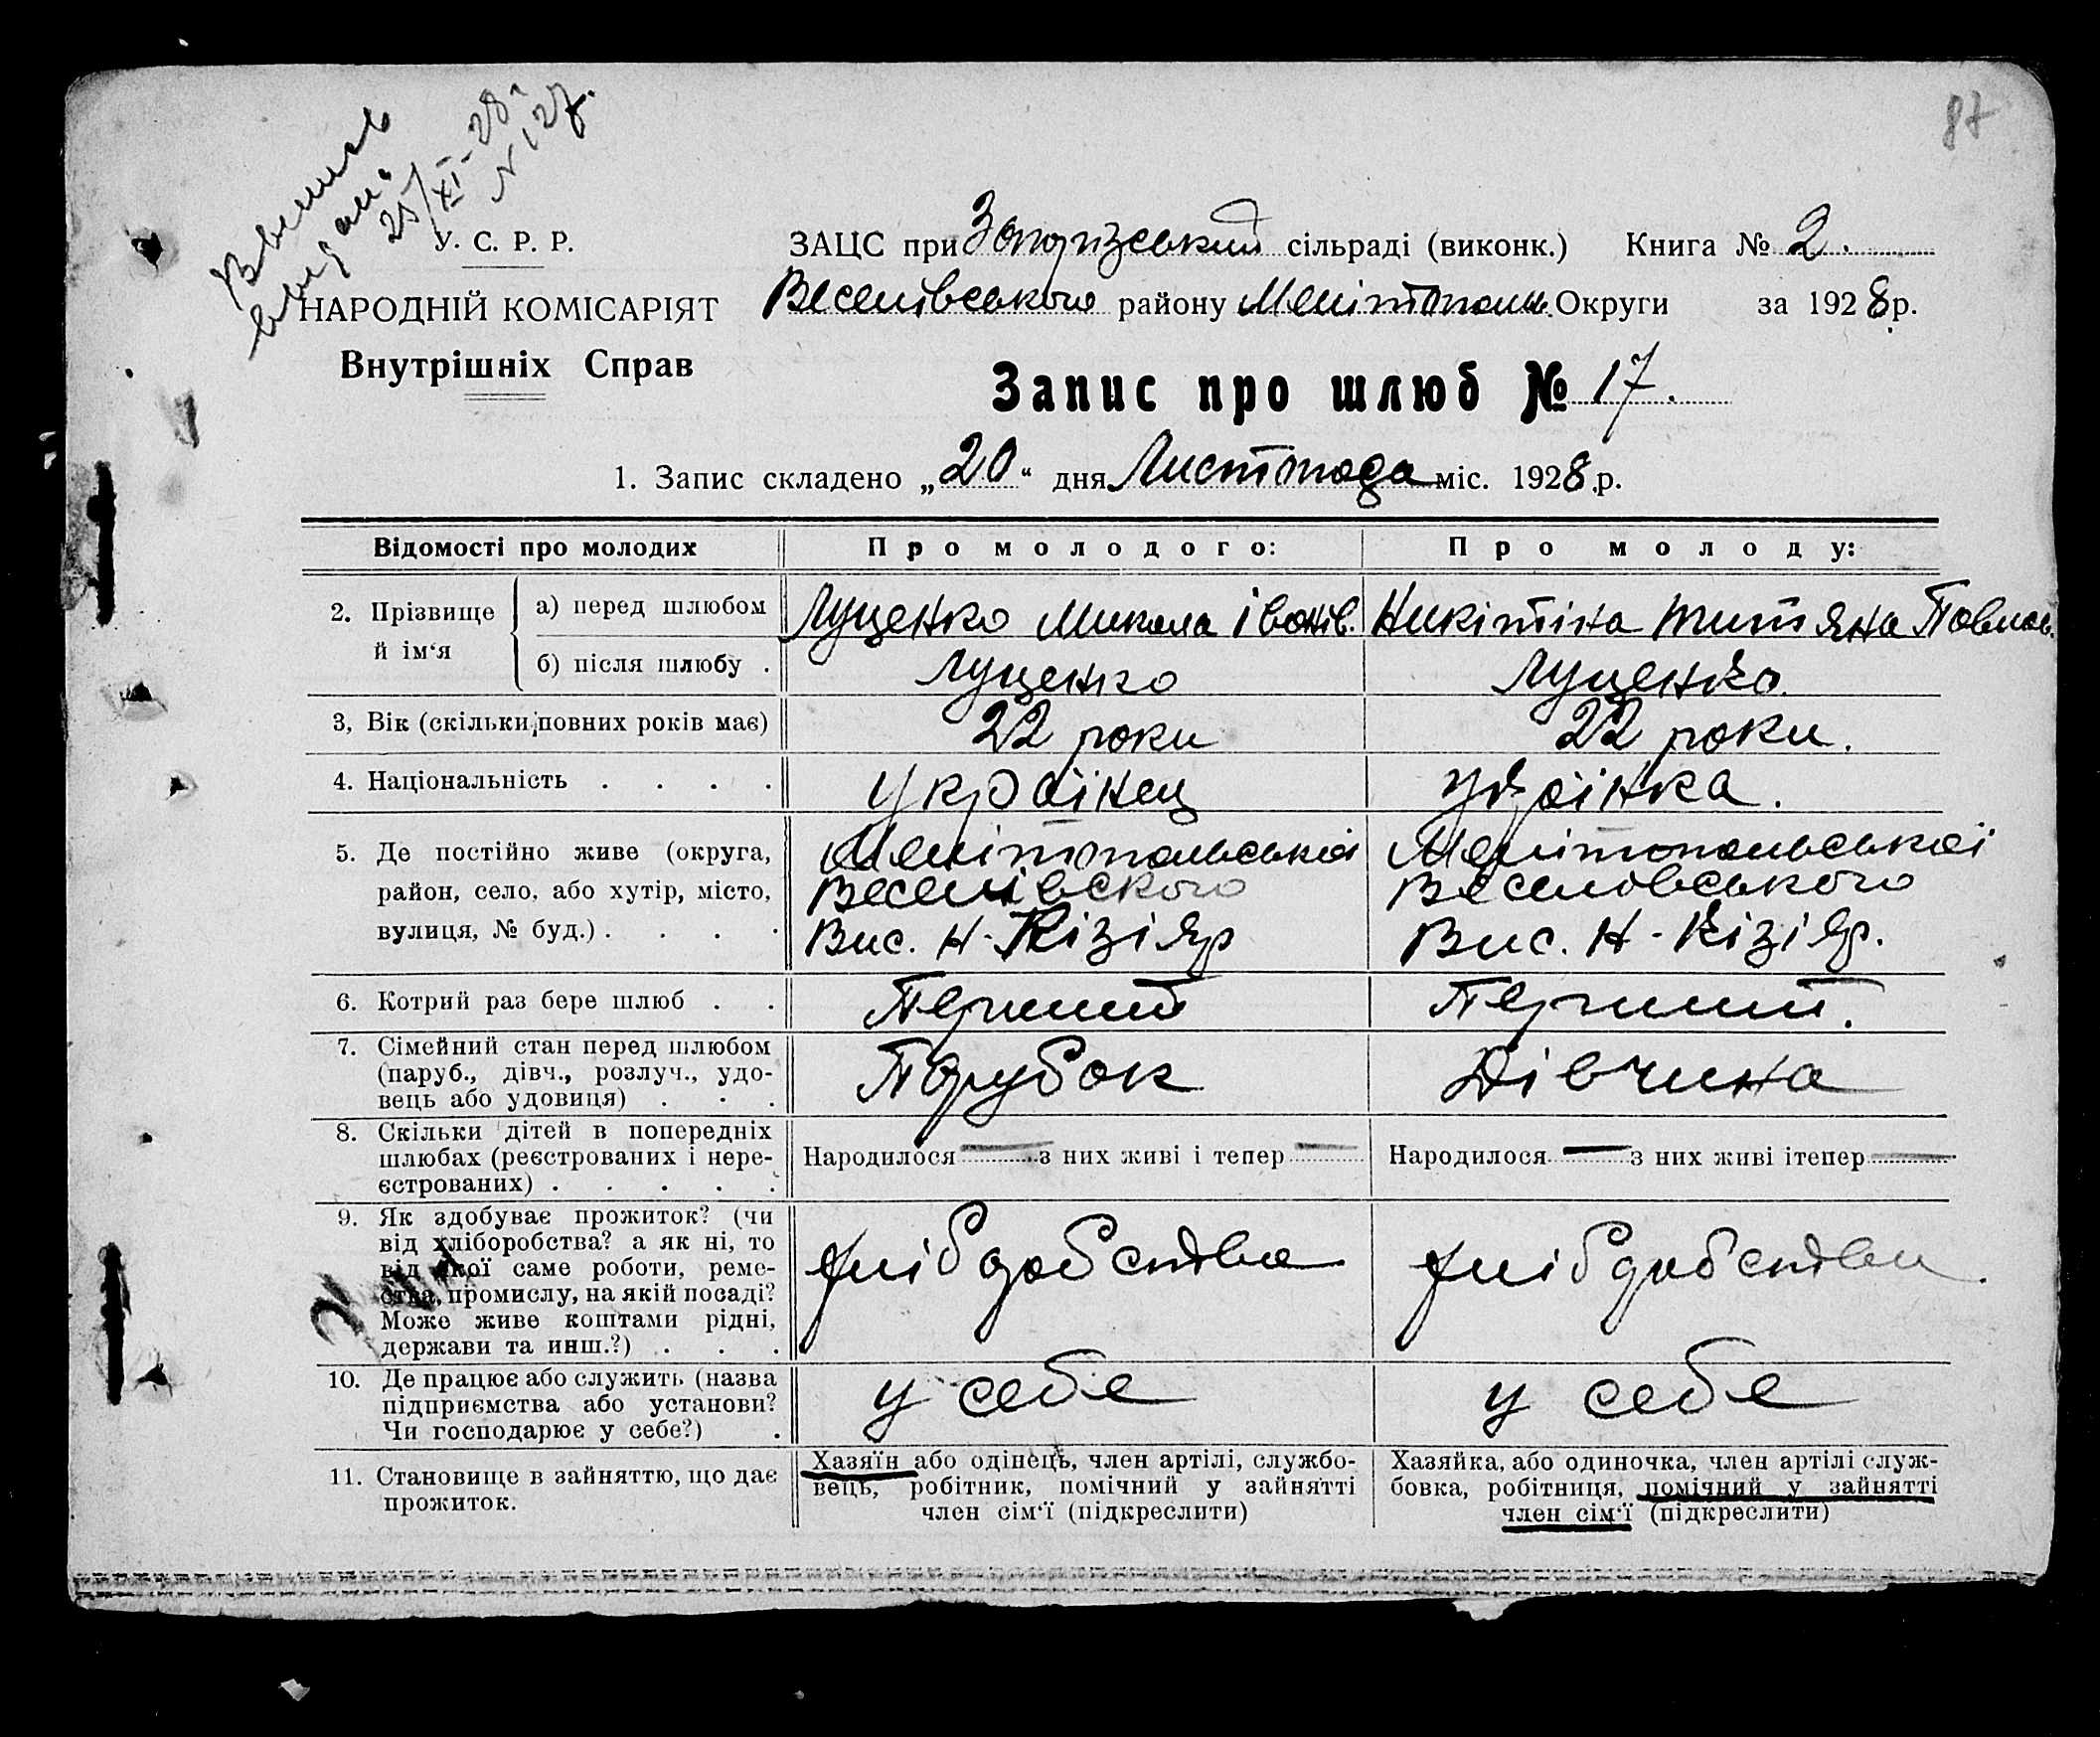 87
25/XI-28
N 127.
У. С. Р. Р.
НАРОДНІЙ КОМІСАРІЯТ
Внутрішніх Справ
ЗАЦС при Запорізський сільраді (виконк.) Книга № 2.
Веселівського району Мелітополь. Округи за 1928 р.
Запис про шлюб № 17.
1. Запис складено „20“ дня Листопада міс. 1928 р.
Відомості про молодих
Про молодого:
Про молоду:
2. Прізвище й ім‘я
а) перед шлюбом
Луценко Микола Іванів.
Никітіна Титяна Павлов.
б) після шлюбу .
Луценко
Луценко.
3, Вік (скільки повних років має)
22 роки
22 роки.
4. Національність . . . .
Українец
Україінка.
5. Де постійно живе (округа,
район, село, або хутір, місто,
вулиця, № буд.) . . . .
Мелітопольської
Веселівского
Вис. Н-Кізіяр
Мелітопольської
Веселовського
Вис. Н-Кізіяр.
6. Котрий раз бере шлюб . .
Перший
Перший.
7. Сімейний стан перед шлюбом
(паруб., дівч., розлуч., удо-
вець або удовиця) . . .
Парубок
Дівчина
8. Скільки дітей в попередніх
шлюбах (реєстрованих і нере-
єстрованих) . . . . .
Народилося — з них живі і тепер —
Народилося — з них живі ітепер —
9. Як здобуває прожиток? (чи
від хліборобства? а як ні, то
від якої саме роботи, реме-
ства, промислу, на якій посаді?
Може живе коштами рідні,
держави та инш.?) . . .
хлібробства
хлібробства.
10. Де працює або служить (назва
підприємства або установи?
Чи господарює у себе?) .
у себе
у себе
11. Становище в зайняттю, що дає
прожиток.
Хазяїн або одінець, член артілі, службо-
вець, робітник, помічний у зайнятті
член сім‘ї (підкреслити)
Хазяйка, або одиночка, член артілі служ-
бовка, робітниця, помічний у зайнятті
член сім‘ї (підкреслити)